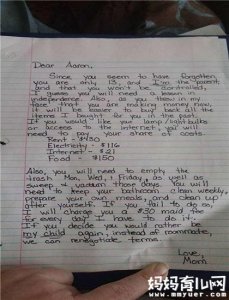 Dear Aaron,
Since you seem to have forgotten
you are only 13, and I'm the parent,
and that you won't be controlled,
I guess you will need a lesson in
independence. Also, as you threw in my
face that you are making money now,
it will be easier to buy back all the
items I bought for you in the past.
If you would like your lamp/lightbulbs
or access to the internet, you will
need to pay your share of costs.
Rent - $430
Electricity - $116
Internet - $21
Food - $150
Also, you will need to empty the
trash Mon, Wed, + Friday, as well as
sweep + vacuum those days. You will
need to keep your bathroom clean weekly,
prepare your own meals, and clean up
after yourself. If you fail to do so,
I will charge you a $30 maid fee
for every day I have to do it.
If you decide you would rather be
my child again, instead of roommate,
we can renegotiate terms.
Love,
Mom
妈妈育儿网
www.mmyuer.com